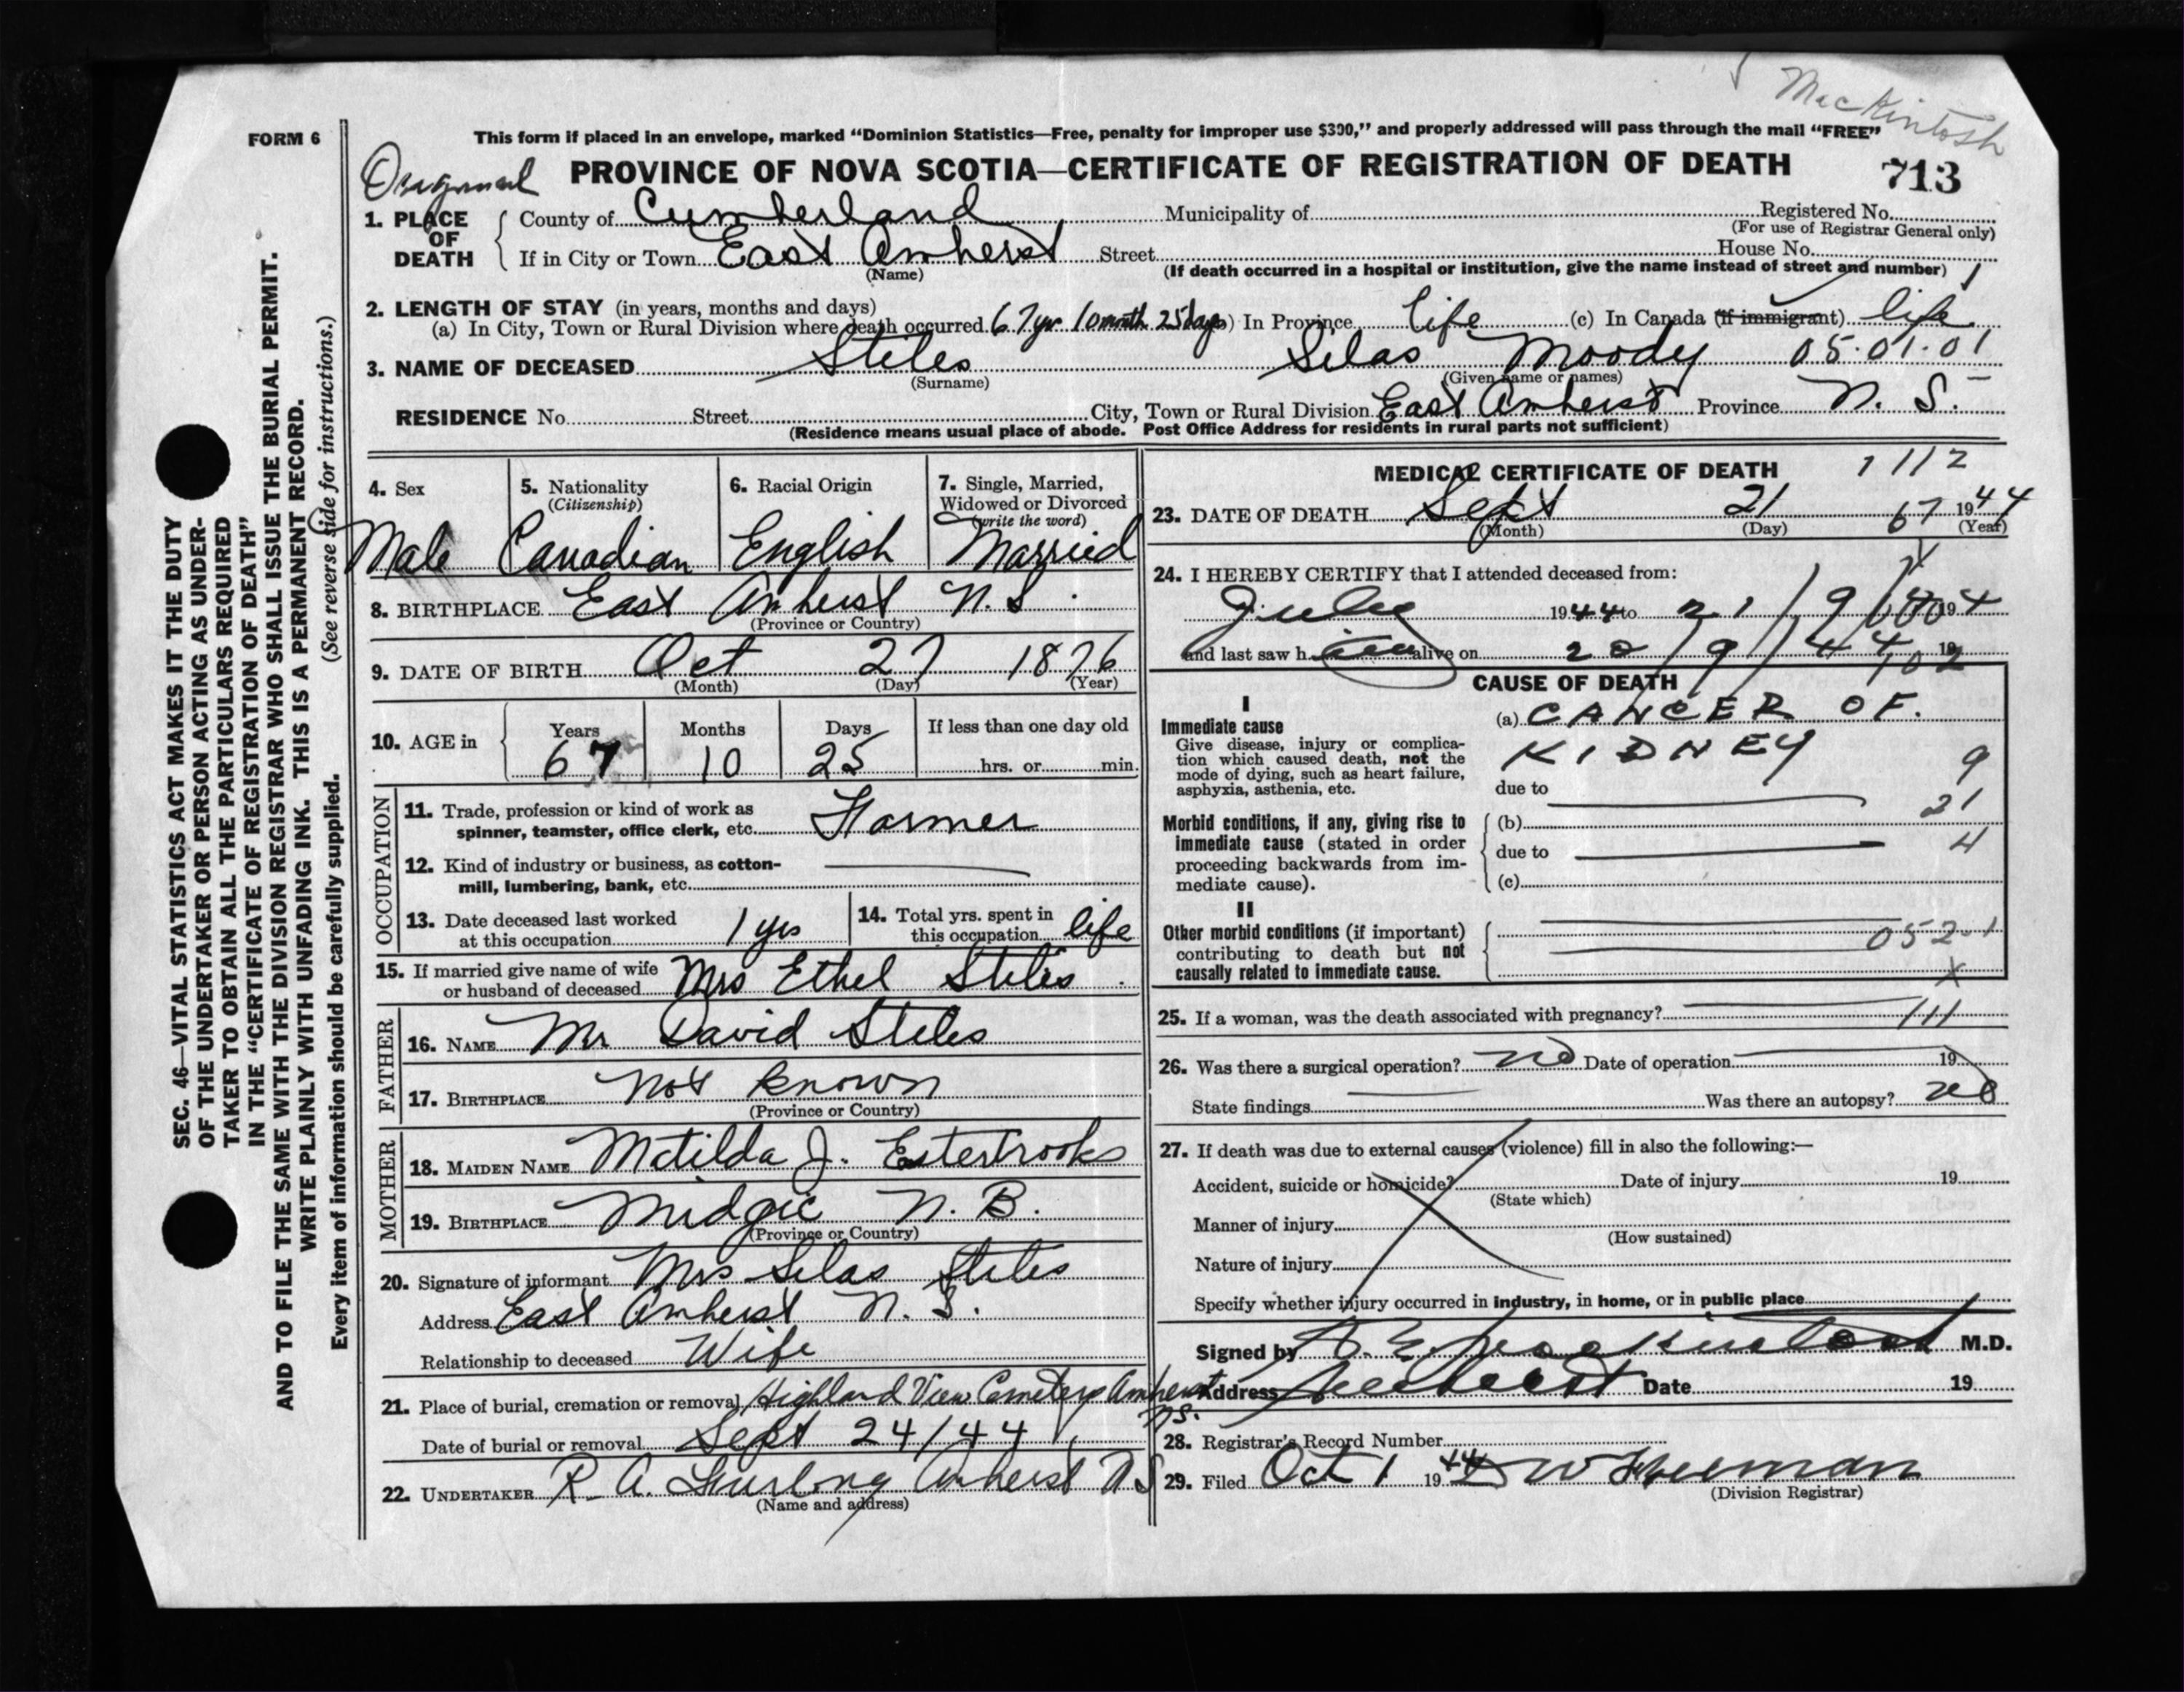 MacKintosh
FORM 6
This form if placed in an envelope, marked “Dominion Statistics—Free, penalty for improper use $300,” and properly addressed will pass through the mail “FREE”
Original PROVINCE OF NOVA SCOTIA—CERTIFICATE OF REGISTRATION OF DEATH 713
1. PLACE OF DEATH
County of Cumberland Municipality of Registered No.
(For use of Registrar General only)
If in City or Town East Amherst Street House No.
(Name) (If death occurred in a hospital or institution, give the name instead of street and number) 1
2. LENGTH OF STAY (in years, months and days)
(a) In City, Town or Rural Division where death occurred 67 yr 10 month 25 days) In Province life (c) In Canada (if immigrant) life
3. NAME OF DECEASED Stiles Silas Moody 05.01.01
(Surname) (Given name or names)
RESIDENCE No. Street City, Town or Rural Division East Amherst Province N. S.
(Residence means usual place of abode. Post Office Address for residents in rural parts not sufficient)
4. Sex 5. Nationality (Citizenship) 6. Racial Origin 7. Single, Married, Widowed or Divorced (write the word)
Male Canadian English Married
8. BIRTHPLACE East Amherst N. S.
(Province or Country)
9. DATE OF BIRTH Oct 27 1876
(Month) (Day) (Year)
10. AGE in Years Months Days If less than one day old
67 10 25 hrs. or min.
OCCUPATION
11. Trade, profession or kind of work as
spinner, teamster, office clerk, etc. Farmer
12. Kind of industry or business, as cotton-
mill, lumbering, bank, etc.
13. Date deceased last worked
at this occupation 1 yrs
14. Total yrs. spent in
this occupation life
15. If married give name of wife
or husband of deceased Mrs Ethel Stiles
FATHER
16. NAME Mr David Stiles
17. BIRTHPLACE Not known
(Province or Country)
MOTHER
18. MAIDEN NAME Matilda J. Estertrooks
19. BIRTHPLACE Midgic N. B.
(Province or Country)
20. Signature of informant Mrs Silas Stiles
Address East Amherst N. S.
Relationship to deceased Wife
21. Place of burial, cremation or removal Highland View Cemetery Amherst N.S.
Date of burial or removal Sept 24/44
22. UNDERTAKER R. A. Furlong Amherst N S
(Name and address)
MEDICAL CERTIFICATE OF DEATH 1112
23. DATE OF DEATH Sept 21 67 1944
(Month) (Day) (Year)
24. I HEREBY CERTIFY that I attended deceased from:
July 1944 to 21/9/ 194
and last saw h im alive on 20/9/44 19
CAUSE OF DEATH
I
Immediate cause
Give disease, injury or complica-
tion which caused death, not the
mode of dying, such as heart failure,
asphyxia, asthenia, etc.
(a) CANCER OF.
KIDNEY 9
due to
21
Morbid conditions, if any, giving rise to
immediate cause (stated in order
proceeding backwards from im-
mediate cause).
(b)
due to 4
(c)
II
Other morbid conditions (if important)
contributing to death but not
causally related to immediate cause.
052-1
X
25. If a woman, was the death associated with pregnancy? 111
26. Was there a surgical operation? no Date of operation 19
State findings Was there an autopsy? no
27. If death was due to external causes (violence) fill in also the following:—
Accident, suicide or homicide? Date of injury 19
(State which)
Manner of injury
(How sustained)
Nature of injury
Specify whether injury occurred in industry, in home, or in public place
Signed by MacKintosh M.D.
Address Amherst Date 19
28. Registrar's Record Number
29. Filed Oct 1 1944 D W Freeman
(Division Registrar)
SEC. 46—VITAL STATISTICS ACT MAKES IT THE DUTY
OF THE UNDERTAKER OR PERSON ACTING AS UNDER-
TAKER TO OBTAIN ALL THE PARTICULARS REQUIRED
IN THE “CERTIFICATE OF REGISTRATION OF DEATH”
AND TO FILE THE SAME WITH THE DIVISION REGISTRAR WHO SHALL ISSUE THE BURIAL PERMIT.
WRITE PLAINLY WITH UNFADING INK. THIS IS A PERMANENT RECORD.
Every item of information should be carefully supplied. (See reverse side for instructions.)